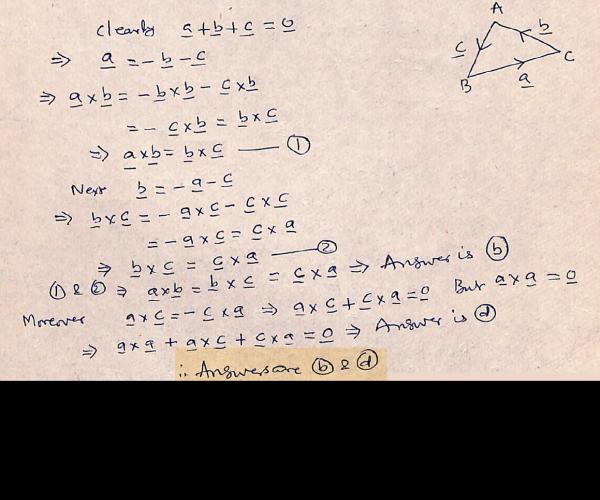 Clearly a+b+c = 0
⇒ a = -b-c
⇒ a×b = -b×b - c×b
= - c×b = b×c
⇒ a×b = b×c —— ①
Next b = -a-c
⇒ b×c = -a×c - c×c
= -a×c = c×a
⇒ b×c = c×a —— ②
① & ② ⇒ a×b = b×c = c×a ⇒ Answer is ⓑ
Moreover a×c = -c×a ⇒ a×c + c×a = 0 But a×a = 0
⇒ a×a + a×c + c×a = 0 ⇒ Answer is ⓓ
∴ Answers are ⓑ & ⓓ
A
c b
B a C